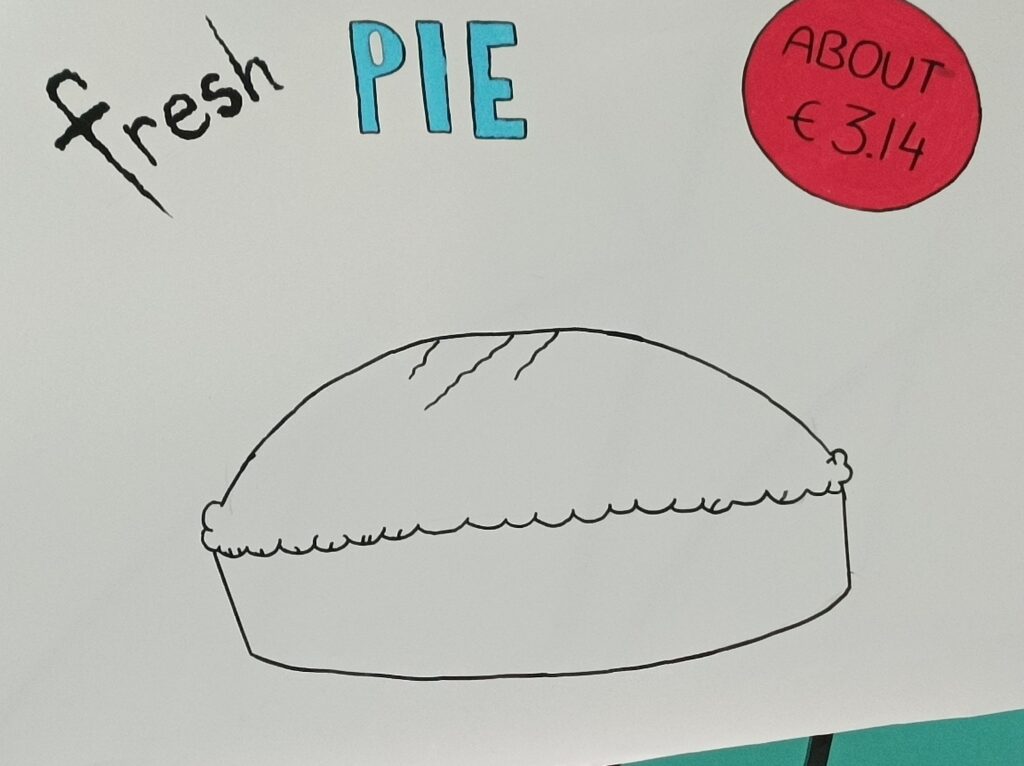 fresh PIE
ABOUT
€ 3.14